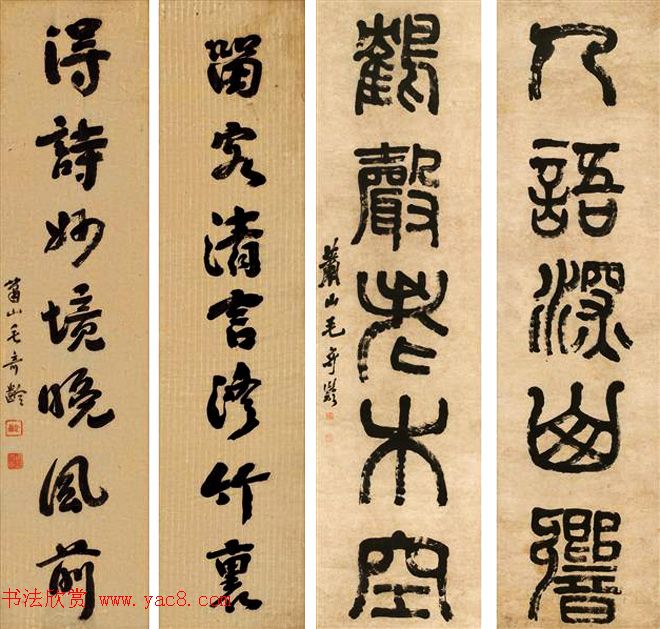 人語深幽響
鶴聲老木空
蕭山毛奇齡
留客清言修竹裏
得詩妙境晚風前
蕭山毛奇齡
书法欣赏 www.yac8.com